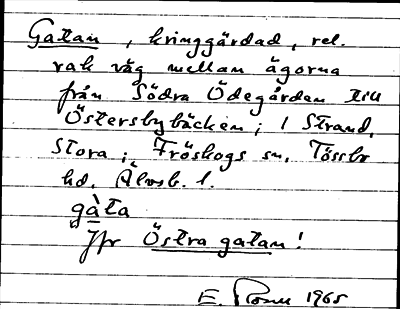 Gatan, kringgärdad, rel.
rak väg mellan ägorna
från Södra Ödegården till
Östersbybäcken; i Strand,
Stora; Fröskogs sn, Tössbo
hd, Älvsb. l.
gàta
Jfr Östra gatan!
E. 1965